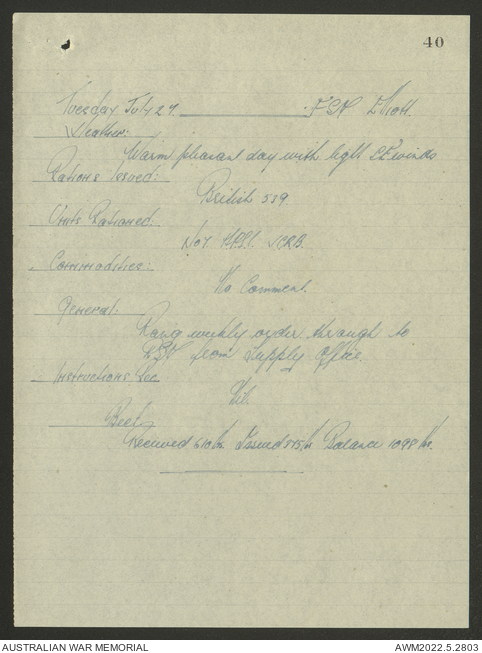 40
Tuesday July 29. FSD Elliott.
Weather:
Warm pleasant day with light SE winds
Rations Issued:
British 559
Units Rationed:
No 4
Commodities:
No Comment.
General:
Rang weekly order through to
from Supply Office.
Instructions Rec
Nil.
Beef
Received 610 lbs. Issued 515 lbs Balance 1098 lbs.
AUSTRALIAN WAR MEMORIAL
AWM2022.5.2803